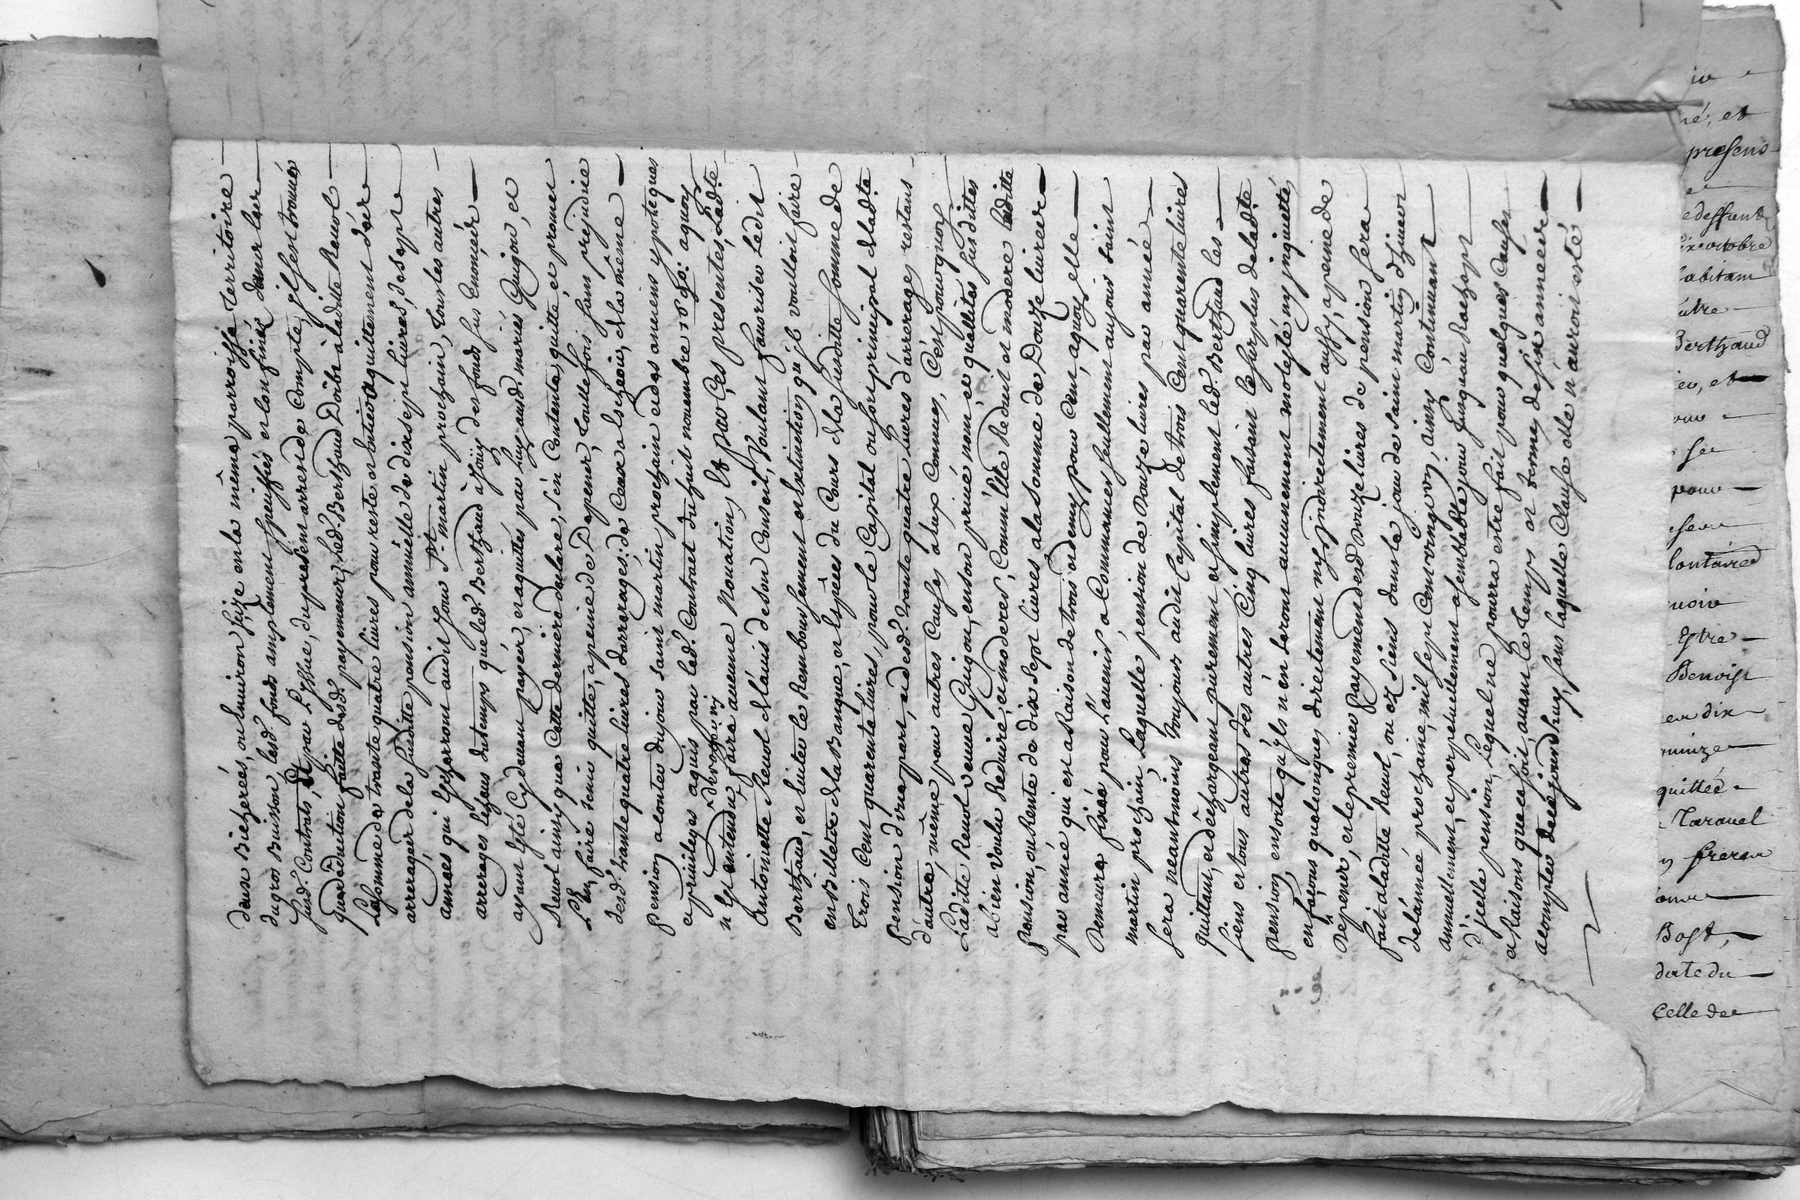 deux Bicherées, ou Environ size en la même parroisse territoire
du gros Buisson, lesd. fonds amplement speciffiés et confinéz dans les
susd. Contrats, et par l'Issue, du present arresté de Compte, il s'est trouvés
que déduction faitte desd. payements, led. Berthaud Doibt à laditte Revol
la somme de trante quatre livres pour reste et entier aquittement des
arrerages de la susditte pension annuelle de dixsept livres, de sept
années qui Escherront audit jour St. martin prochain, tous les autres
arrerages Escheus du temps que led. Berthaud à joüy des fonds sus Enoncés
ayant Esté Cy devant payés, et aquittés par luy ausd. mariés Guigon, et
Revol ainsy que Cette derniere declare, s'en Contente, quitte et promet
l'En faire tenir quitte, a peine de Depener, touttefois sans prejudice
desd. trante quatre livres d'arrerages de Ceux a Escheoir, de la même
pension a conter du jour saint martin prochain et des anciens ypoteques
et privileges aquis par led. Contract dixhuit novembre 1690: aquoy
n'Est Entendu desroger ny faire aucune Novation, Et par Ces presentes, Ladte.
Antoinette Revol de l'avis de son Conseil, Voulant favoriser Ledit
Berthaud, et Eviter le Remboursement et Extinction qu'il vouloit faire
en Billette de la Banque, et Espèces du Cours de la susditte somme de
Trois Cent quarante livres, pour le Capital ou sort principal de ladte.
pension d'une part, et desd. trante quatre livres d'arrerages restans
d'autre, même pour autres Causes a Eux Connues, C'est pourquoy
Laditte Revol veuve Guigon, en son privé nom, et quallitas susdittes
a bien voulu Reduire, et moderer, Comm'elle Reduit et modere laditte
pension, ou Rente de dix sept livres a la somme de Douze livres
par année qui est a Raison de trois et demy pour Cent, aquoy elle
Demeure fixée pour l'avenir a Commancer seullement au jour saint
martin prochain, Laquelle pension de Douze livres par année
sera neantmoins toujours au dit Capital de trois Cent quarante livres
quittant, et déchargeant purement et simplement led. Berthaud les
siens et tous autres des autres Cinq livres faisant le surplus de ladte.
pension, ensorte qu'ils n'en seront aucunement molesté ny inquietté
en façons quelconques directement ny indirectement aussy, a peine de
Dépener, et le premier payement desd. Douze livres de pension sera
fait a laditte Revol, ou ez siens dans le jour de saint martin d'hiver
de l'année prochaine, mil sept Cent vingt un, ainsy Continuant
annuellement, et perpetuellement a semblable jour jusqu'au Rachapt
d'jcelle pension, Lequel ne pourra estre fait pour quelques Causes
et Raisons que ce soit, avant le temps et terme, de six années
a compter de ce jourd'huy, sans laquelle Clause elle n'auroit esté
né, et
presens
deffunt
octobre
habitant
Berthaud
pour
Estre
Benoist
dix
quinze
quittée
Taravel
freres
Bost,
datte du
Celle de